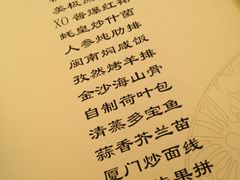 XO酱爆红
蚝皇炒什菌
人参炖肋排
闽南焖咸饭
孜然烤羊排
金沙海山骨
自制荷叶包
清蒸多宝鱼
蒜香芥兰苗
厦门炒面线
果拼